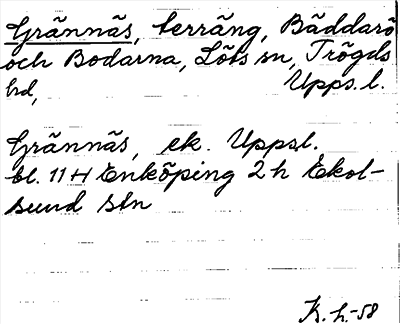 Grännäs, terräng, Bäddarö
och Bodarna, Löts sn, Trögds
hd, Upps. l.
Grännäs, ek. Uppsl.
bl. 11 H Enköping 2 h Ekol-
sund stn
K. h.-58